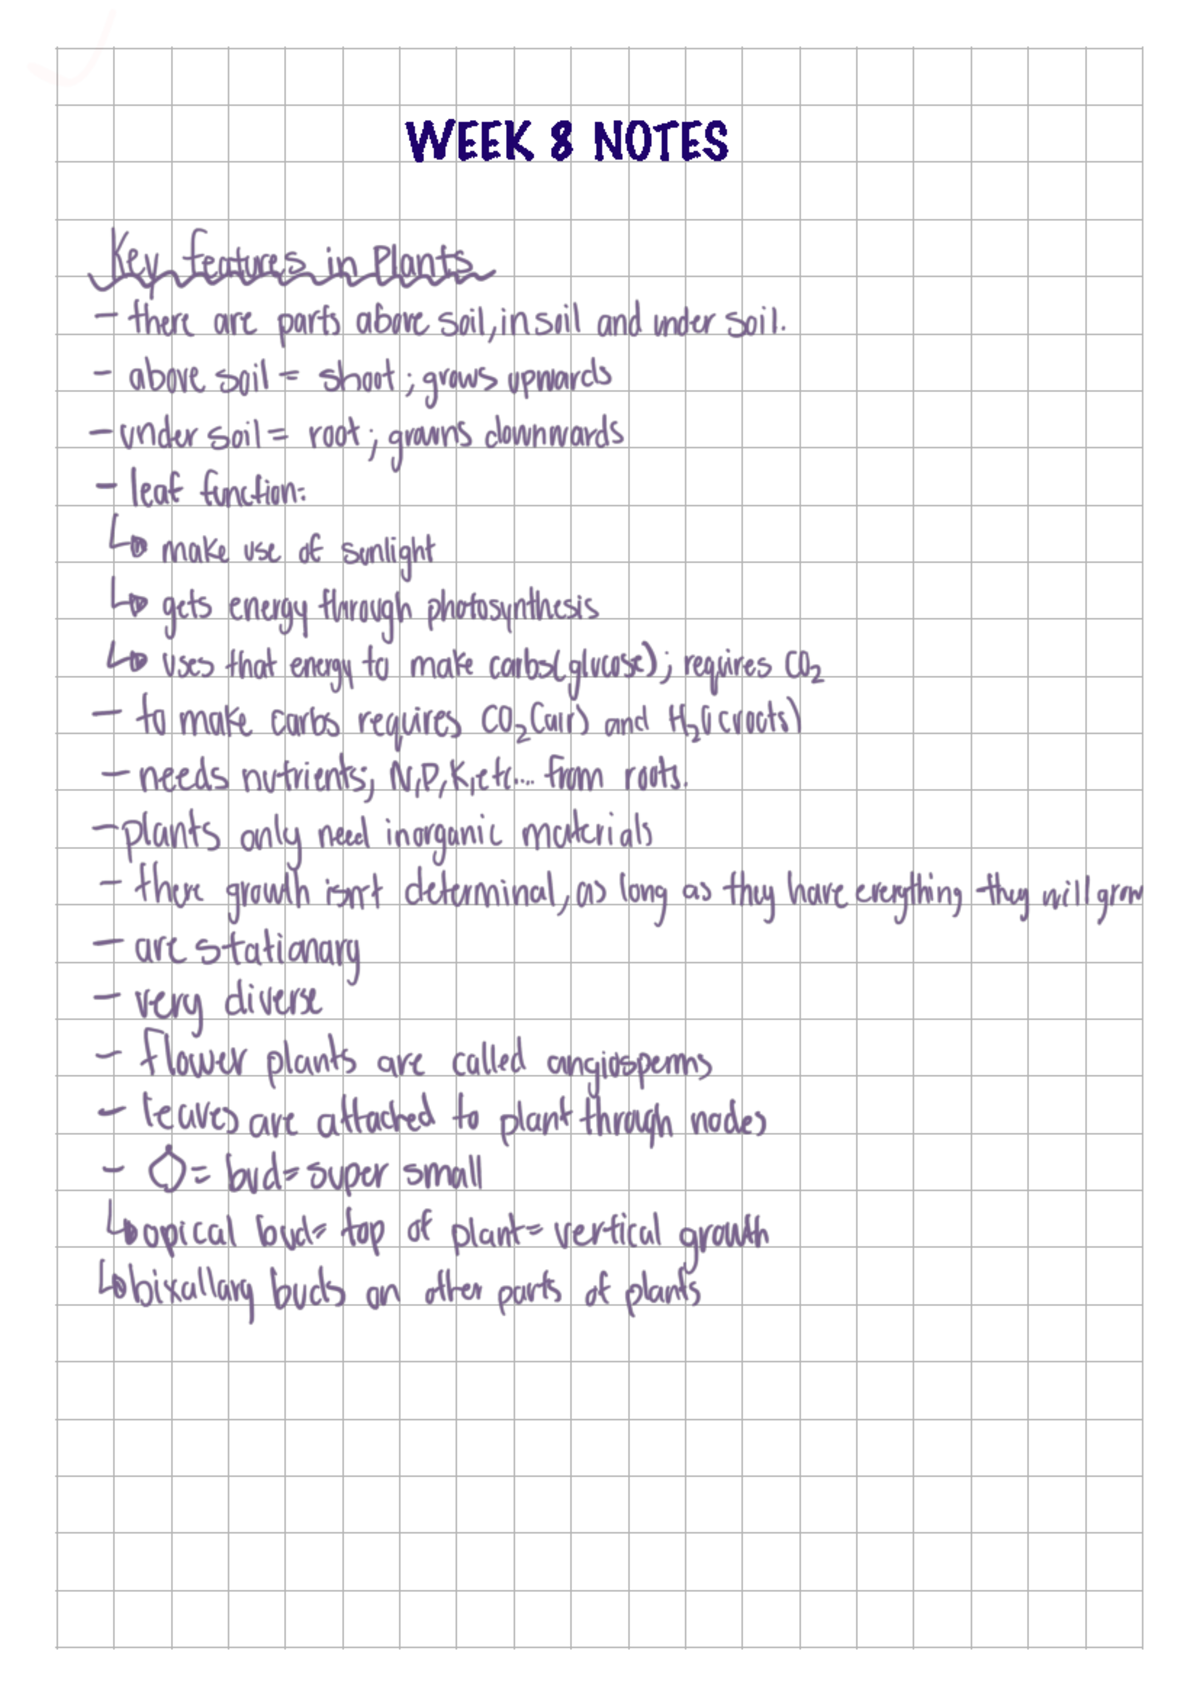 WEEK 8 NOTES
Key features in Plants
- there are parts above soil, in soil and under soil.
- above soil = shoot ; grows upwards
- under soil = root ; growns downwards
- leaf function:
↳ make use of sunlight
↳ gets energy through photosynthesis
↳ uses that energy to make carbs(glucose); requires CO₂
- to make carbs requires CO₂(air) and H₂O(roots)
- needs nutrients; N,P,K,etc.... from roots.
- plants only need inorganic materials
- there growth isn't determinal, as long as they have everything they will grow
- are stationary
- very diverse
- flower plants are called angiosperms
- leaves are attached to plant through nodes
- = bud= super small
↳ apical bud= top of plant= vertical growth
↳ bixallary buds on other parts of plants